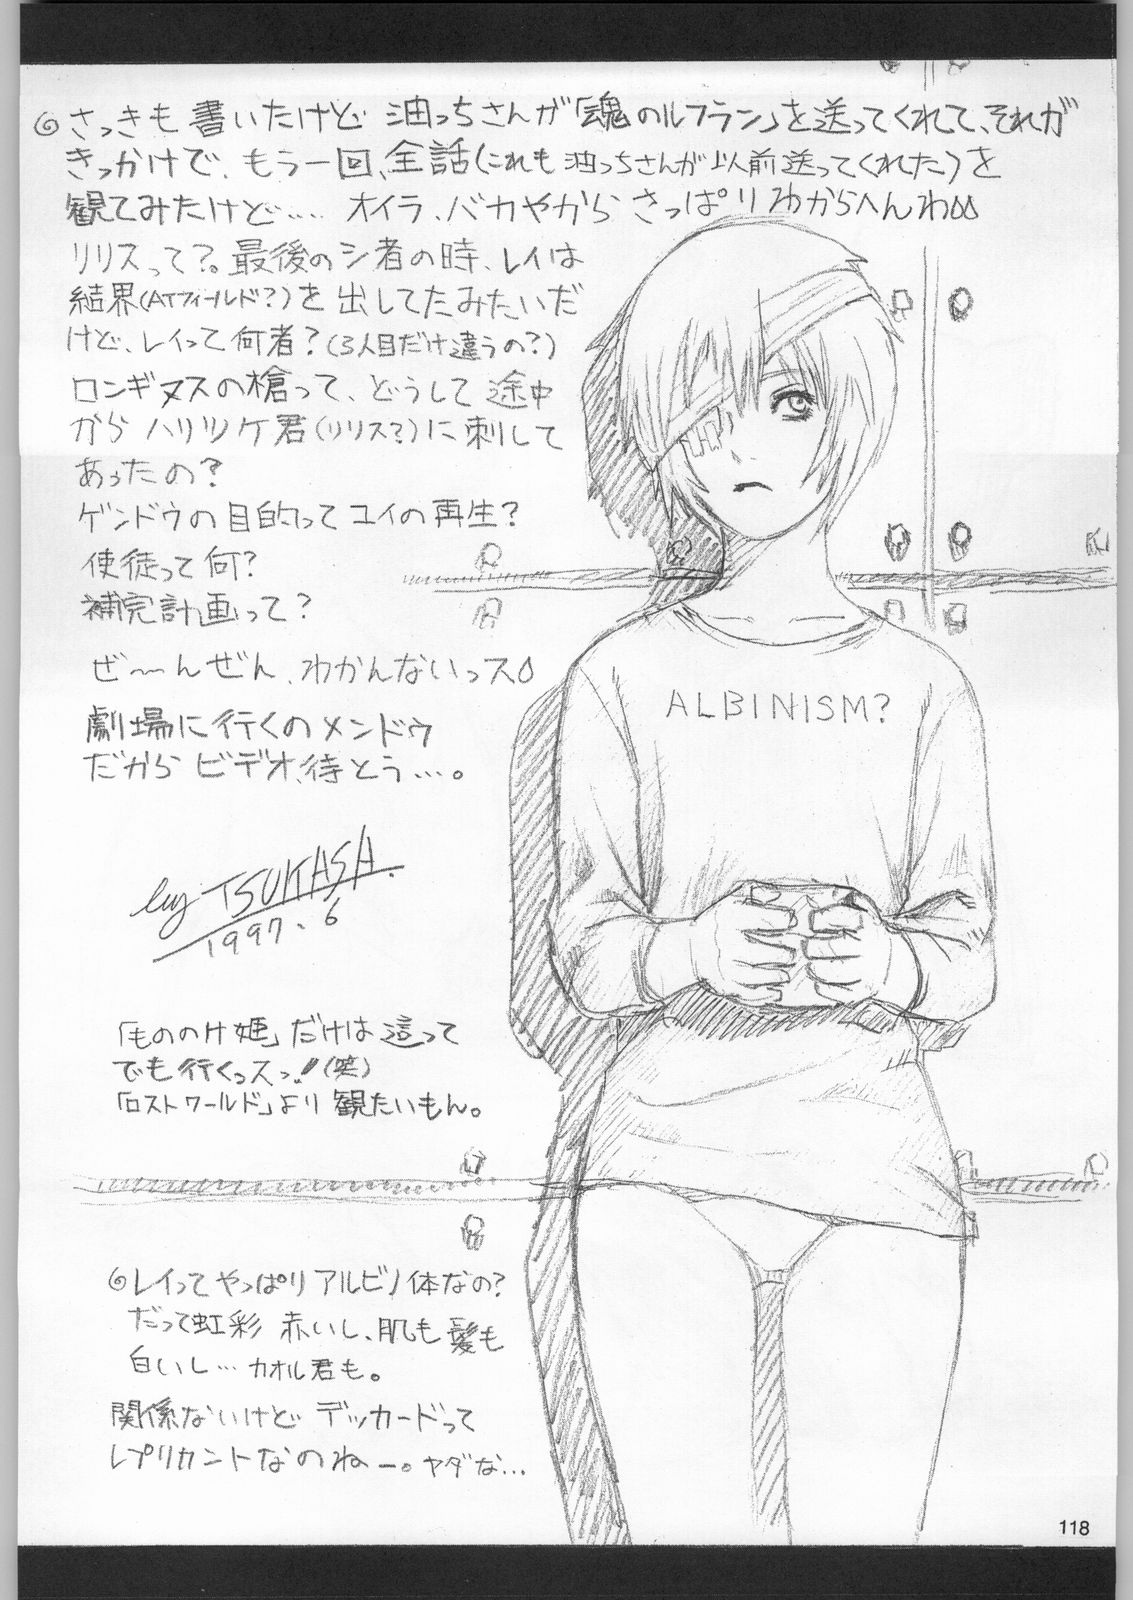 さっきも書いたけど油っちさんが「魂のルフラン」を送ってくれて、それが
きっかけで、もう一回、全話(これも油っちさんが以前送ってくれた)を
観てみたけど…… オイラ、バカやからさっぱりわからへんわ
リリスって?。最後のシ者の時、レイは
結界(ATフィールド?)を出してたみたいだ
けど、レイって何者?(3人目だけ違うの?)
ロンギヌスの槍って、どうして途中
からハリツケ君(リリス?)に刺して
あったの?
ゲンドウの目的ってユイの再生?
使徒って何?
補完計画って?
ぜ〜んぜん、わかんないっス
劇場に行くのメンドウ
だからビデオ、待とう…。
ALBINISM?
by TSUKASA.
1997.6
「もののけ姫」だけは這って
でも行くっスっ!(笑)
「ロストワールド」より観たいもん。
レイってやっぱりアルビノ体なの?
だって虹彩赤いし、肌も髪も
白いし…カオル君も。
関係ないけどデッカードって
レプリカントなのねー。ヤダな…
118